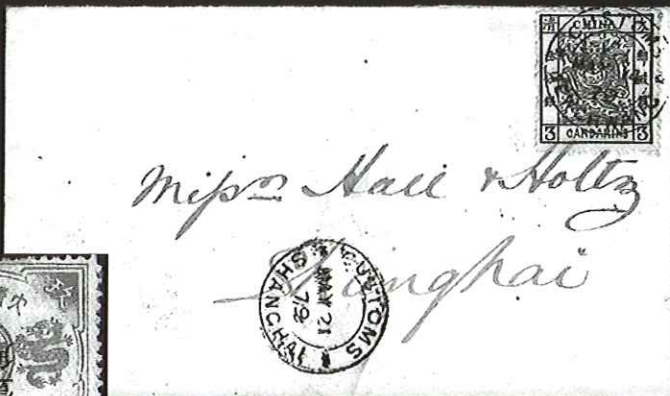 CHINA
大
清
3 CANDARINS 3
Messrs Hall & Holtz
Shanghai
CUSTOMS
MAY 21
79
SHANGHAI